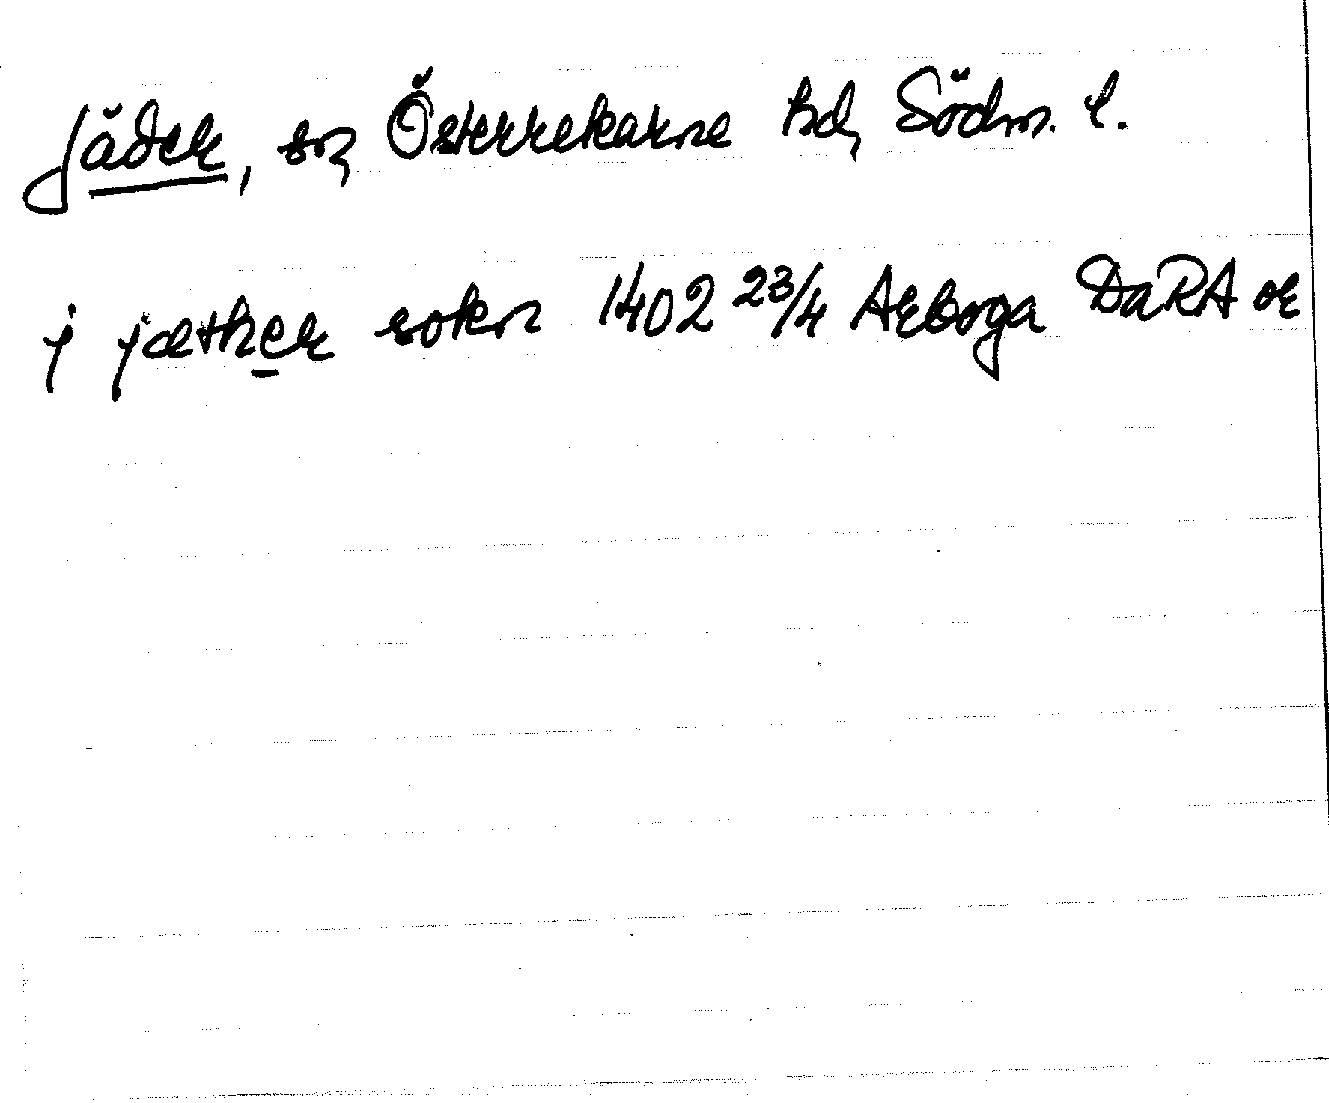 Jäder, sn, Österrekarne hd, Södm. l.
j jæther sokn 1402 23/4 Arboga DaRA or